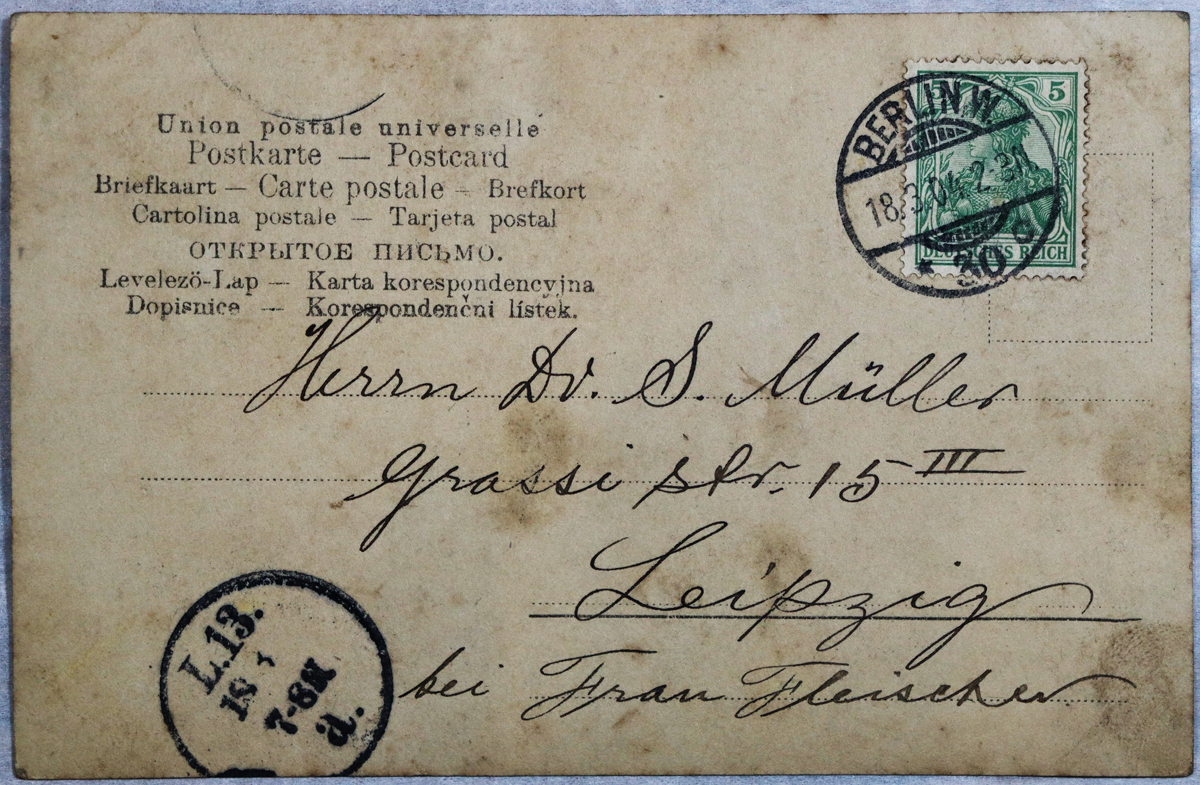 Union postale universelle
Postkarte — Postcard
Briefkaart — Carte postale — Brefkort
Cartolina postale — Tarjeta postal
ОТКРЫТОЕ ПИСЬМО.
Levelező-Lap — Karta korespondencyjna
Dopisnice — Korespondenční lístek.
5
BERLIN.W.
2-3N
30
DEUTSCHES REICH
Herrn Dr. S. Müller
Grassi str. 15 III
Leipzig
bei Frau Fleischer
L.13.
18
7-8N
a.